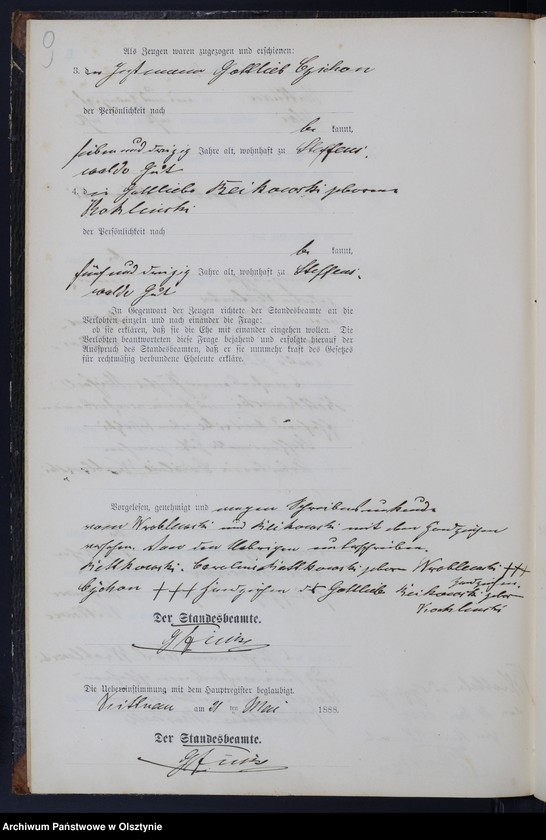 9
Als Zeugen waren zugezogen und erschienen:
3. der Gottlieb Czichon
der Persönlichkeit nach
be kannt,
sieben und dreißig Jahre alt, wohnhaft zu Steffens-
walde Gut
4. die Gottliebe Reikowski geborene
Kochlinski
der Persönlichkeit nach
be kannt,
fünf und dreißig Jahre alt, wohnhaft zu Steffens-
walde Gut
In Gegenwart der Zeugen richtete der Standesbeamte an die
Verlobten einzeln und nach einander die Frage:
ob sie erklären, daß sie die Ehe mit einander eingehen wollen. Die
Verlobten beantworteten diese Frage bejahend und erfolgte hierauf der
Ausspruch des Standesbeamten, daß er sie nunmehr kraft des Gesetzes
für rechtmäßig verbundene Eheleute erkläre.
Vorgelesen, genehmigt und wegen Schreibensunkunde
von Wroblewski und Reikowski mit den Handzeichen
versehen. Von den Uebrigen unterschrieben.
geborn Wroblewski +++
Handzeichen.
Czichon +++ Handzeichen der Gottliebe Reikowski geborn
Kochlinski
Der Standesbeamte.
Die Uebereinstimmung mit dem Hauptregister beglaubigt.
am 21 ten Mai 1888.
Der Standesbeamte.
Archiwum Państwowe w Olsztynie